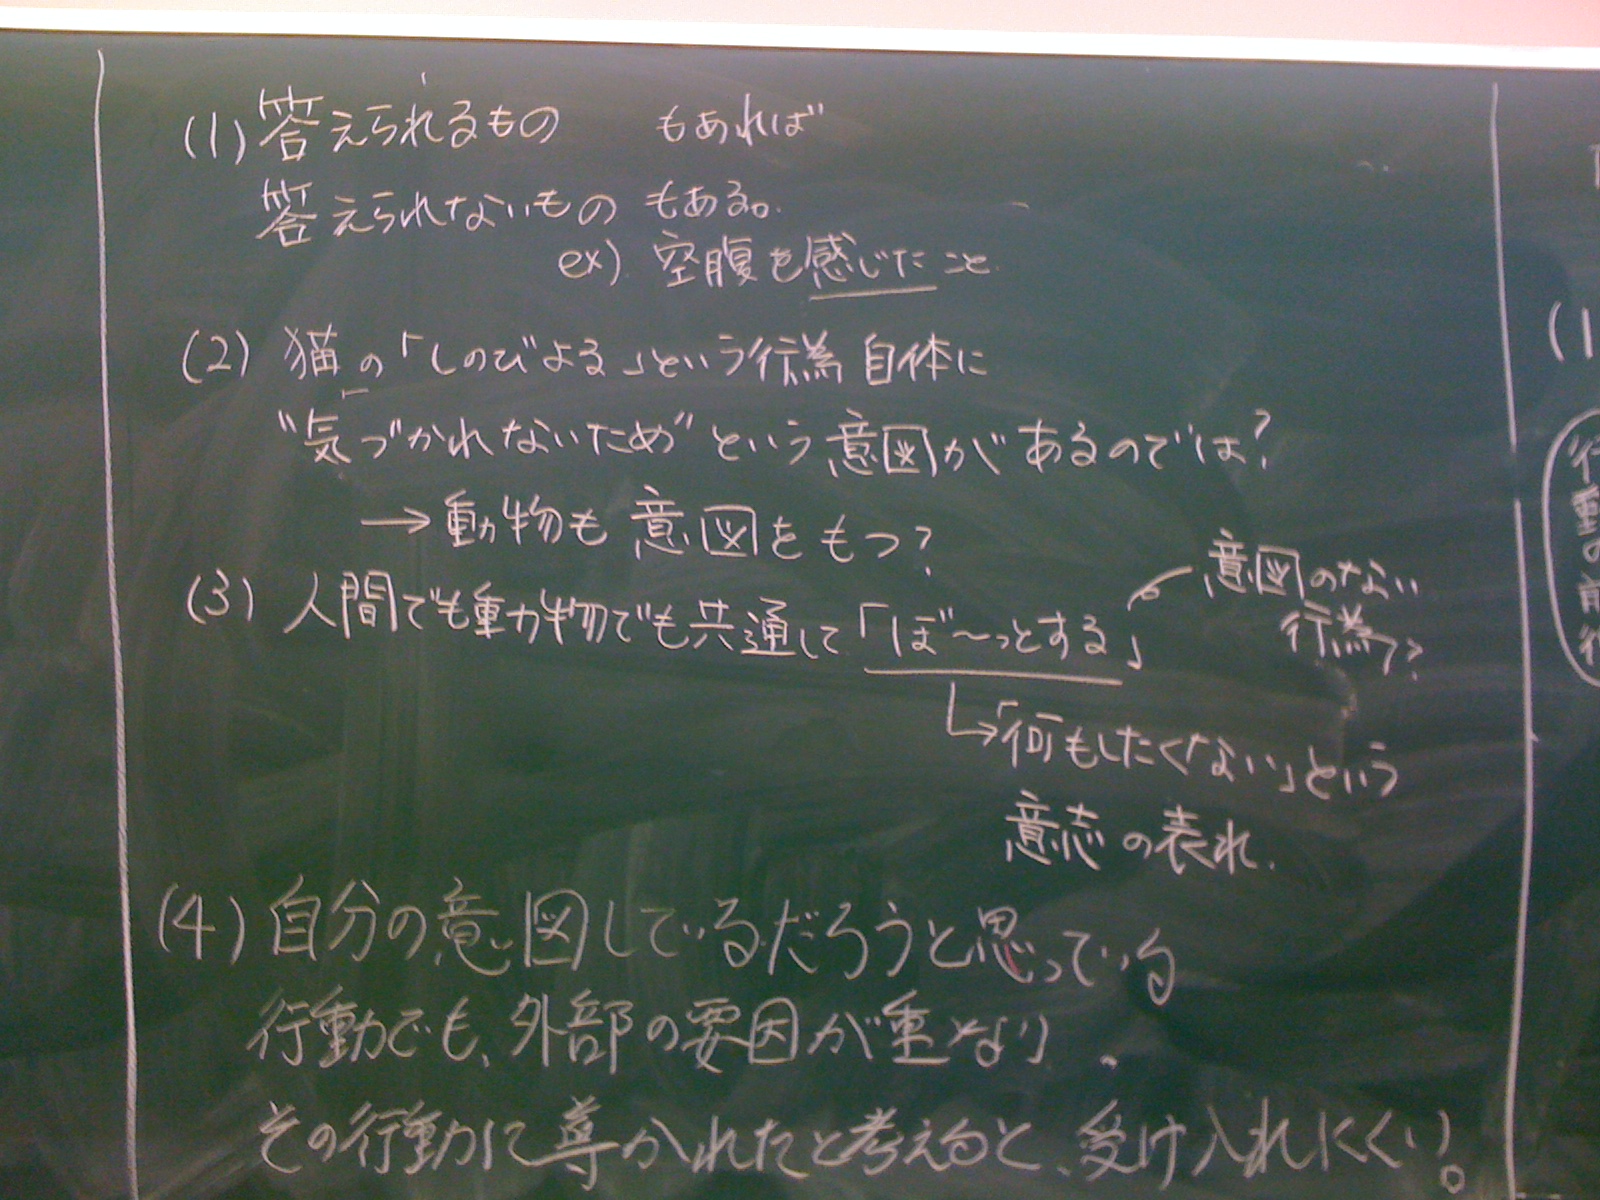 (1) 答えられるもの　もあれば
答えられないもの もある。
ex). 空腹を感じたこと.
(2) 猫の「しのびよる」という行為自体に
"気づかれないため"という意図があるのでは?
→動物も意図をもつ?
(3) 人間でも動物でも共通して「ぼ〜っとする」
意図のない
行為?
↳「何もしたくない」という
意志の表れ.
(4) 自分の意図しているだろうと思っている
行動でも、外部の要因が重なり、
その行動に導かれたと考えると、受け入れにくい。
(1